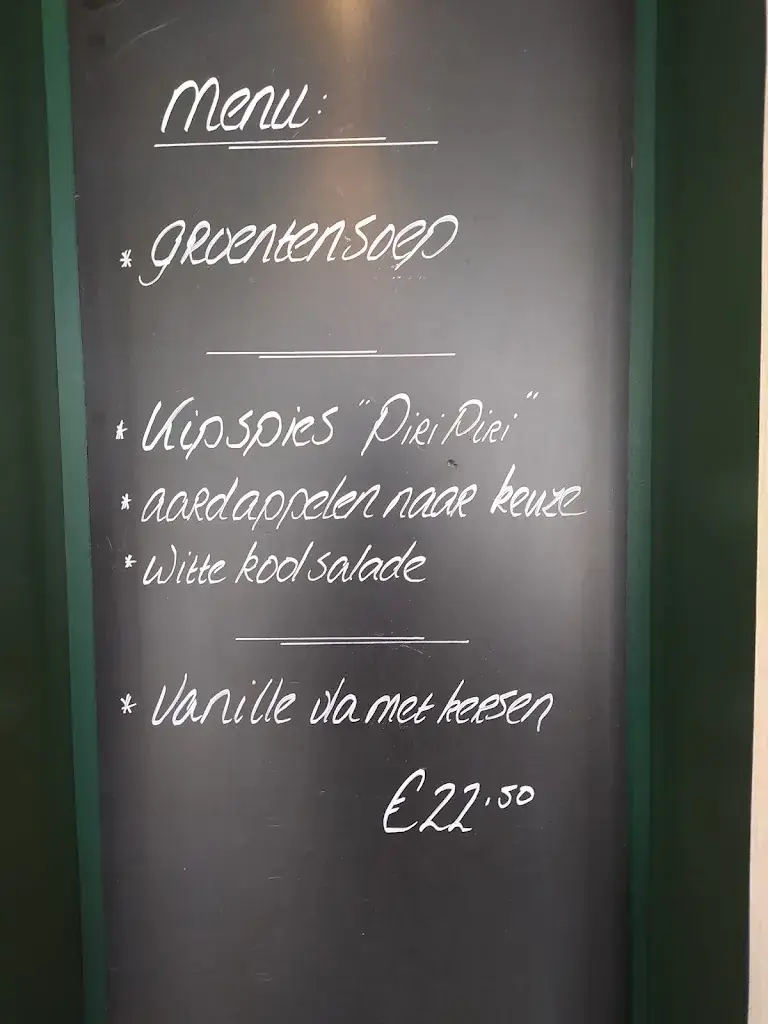 Menu:
* groentensoep
* Kipspies "Piri Piri"
* aardappelen naar keuze
* Witte kool salade
* Vanille vla met kersen
€22.50